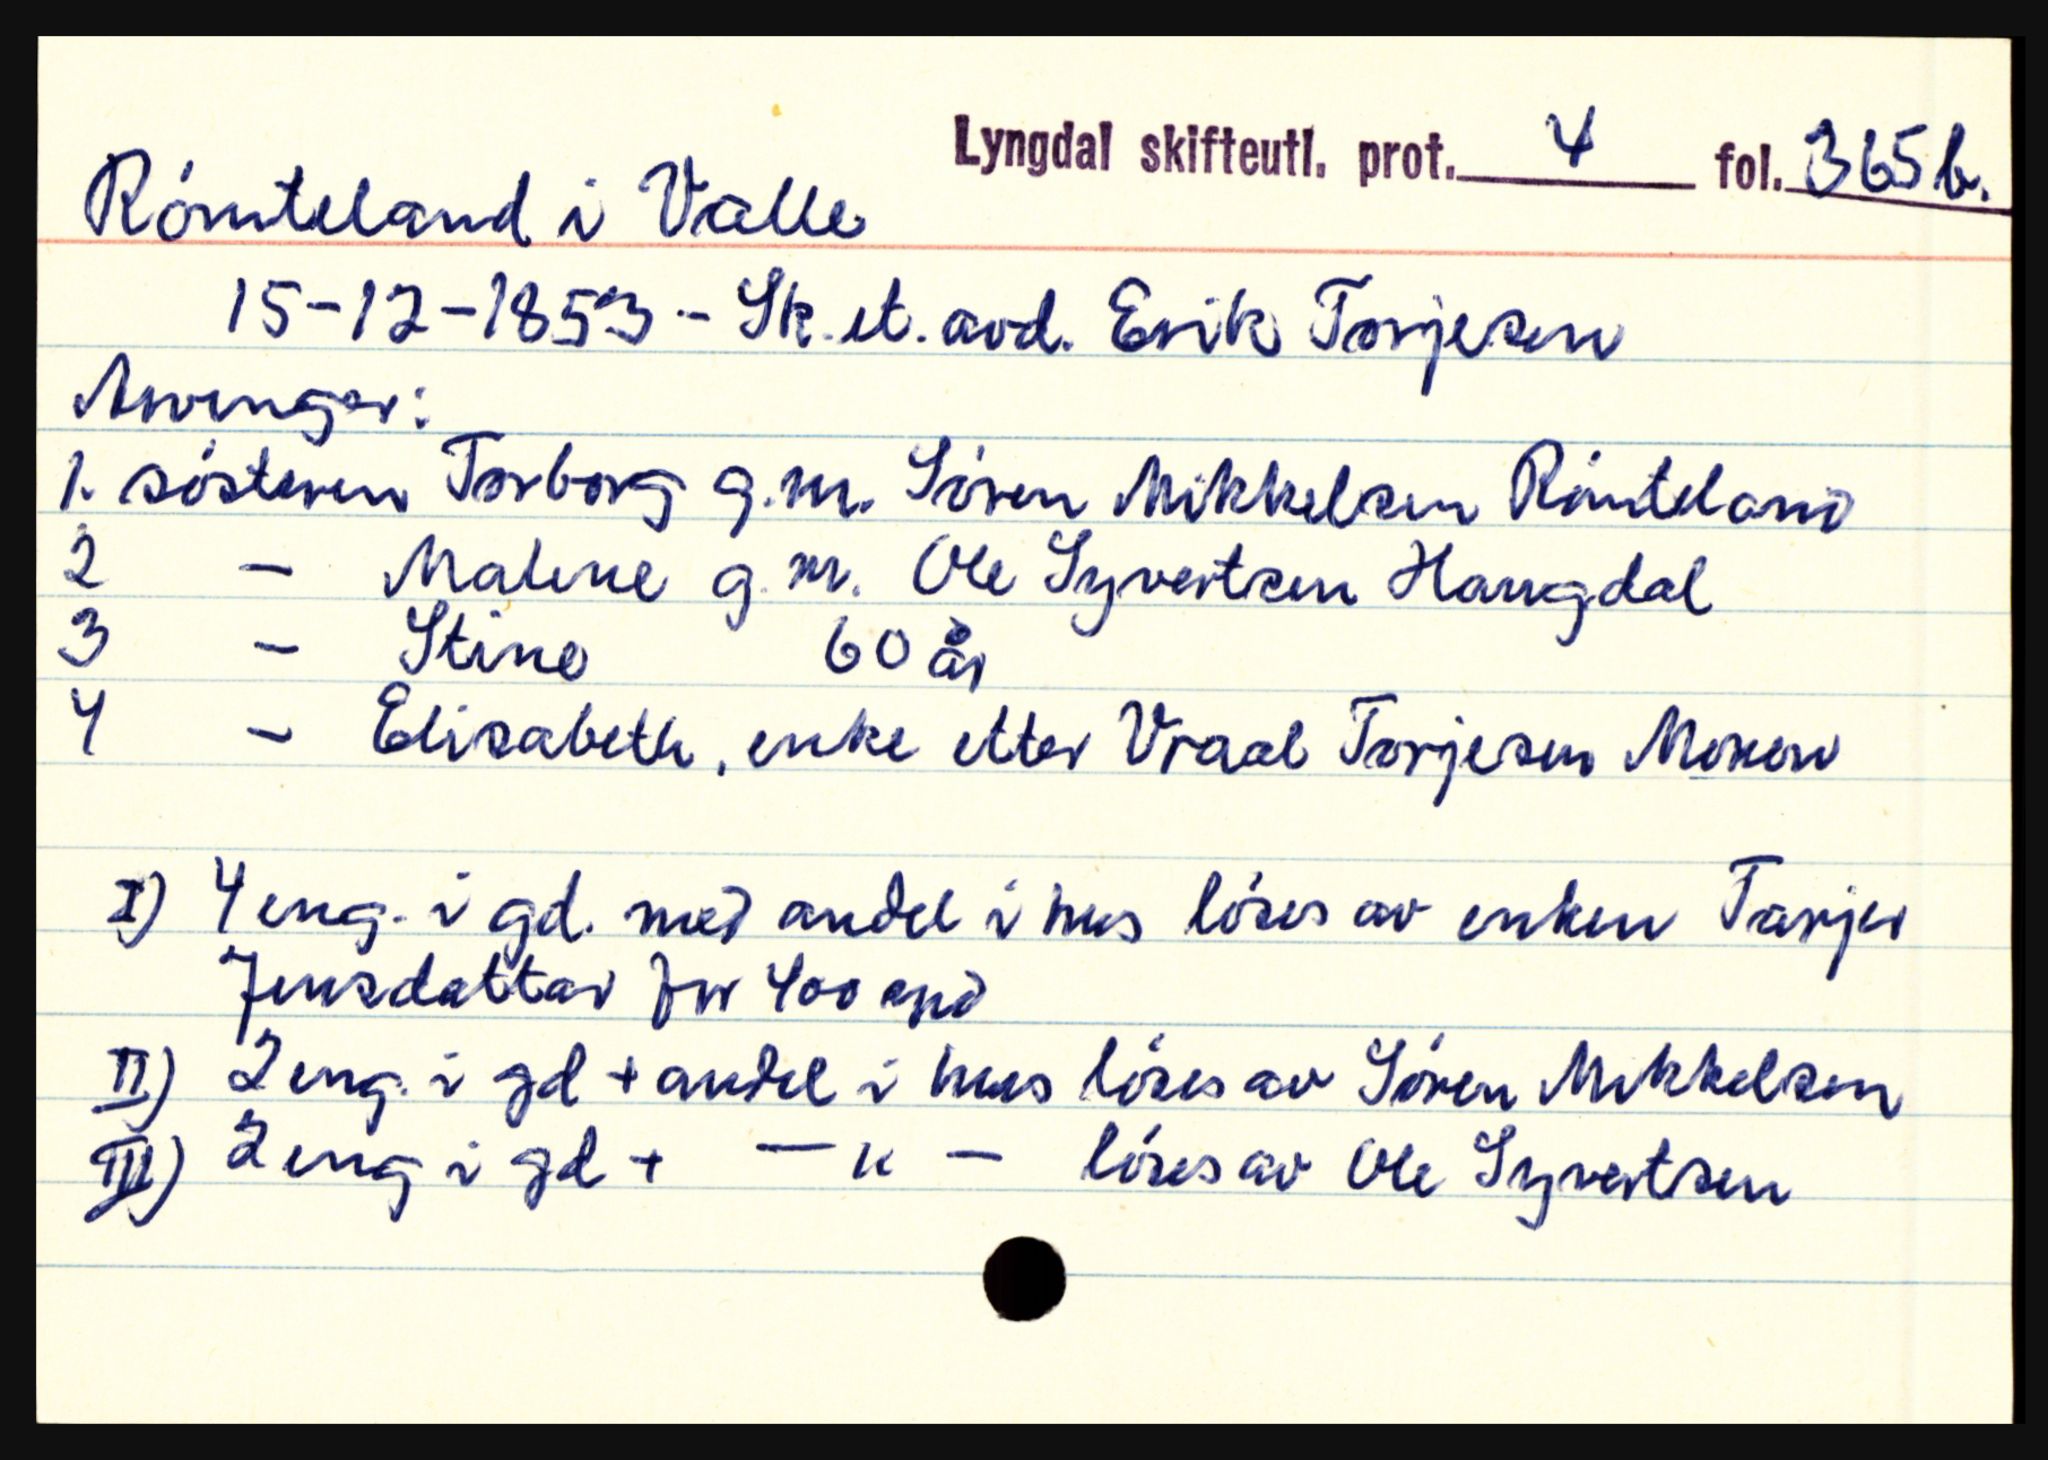 Lyngdal skifteutl. prot. 4 fol. 365b.
Rómteland i Valle
15-12-1853 - Sk. et. avd. Erik Torjesen
Arvinger:
1. sósteren Torborg g.m. Sóren Mikkelsen Rómteland
2 - Malene g.m. Ole Syvertsen Haugdal
3 - Stine 60 år
4 - Elisabeth, enke etter Vraal Torjesen Monen
I) 4 eng. i gd. med andel i hus lóses av enken Tarjer
Jensdatter for 400 spd
II) 2 eng. i gd + andel i hus lóses av Sóren Mikkelsen
III) 2 eng i gd + — " — lóses av Ole Syvertsen